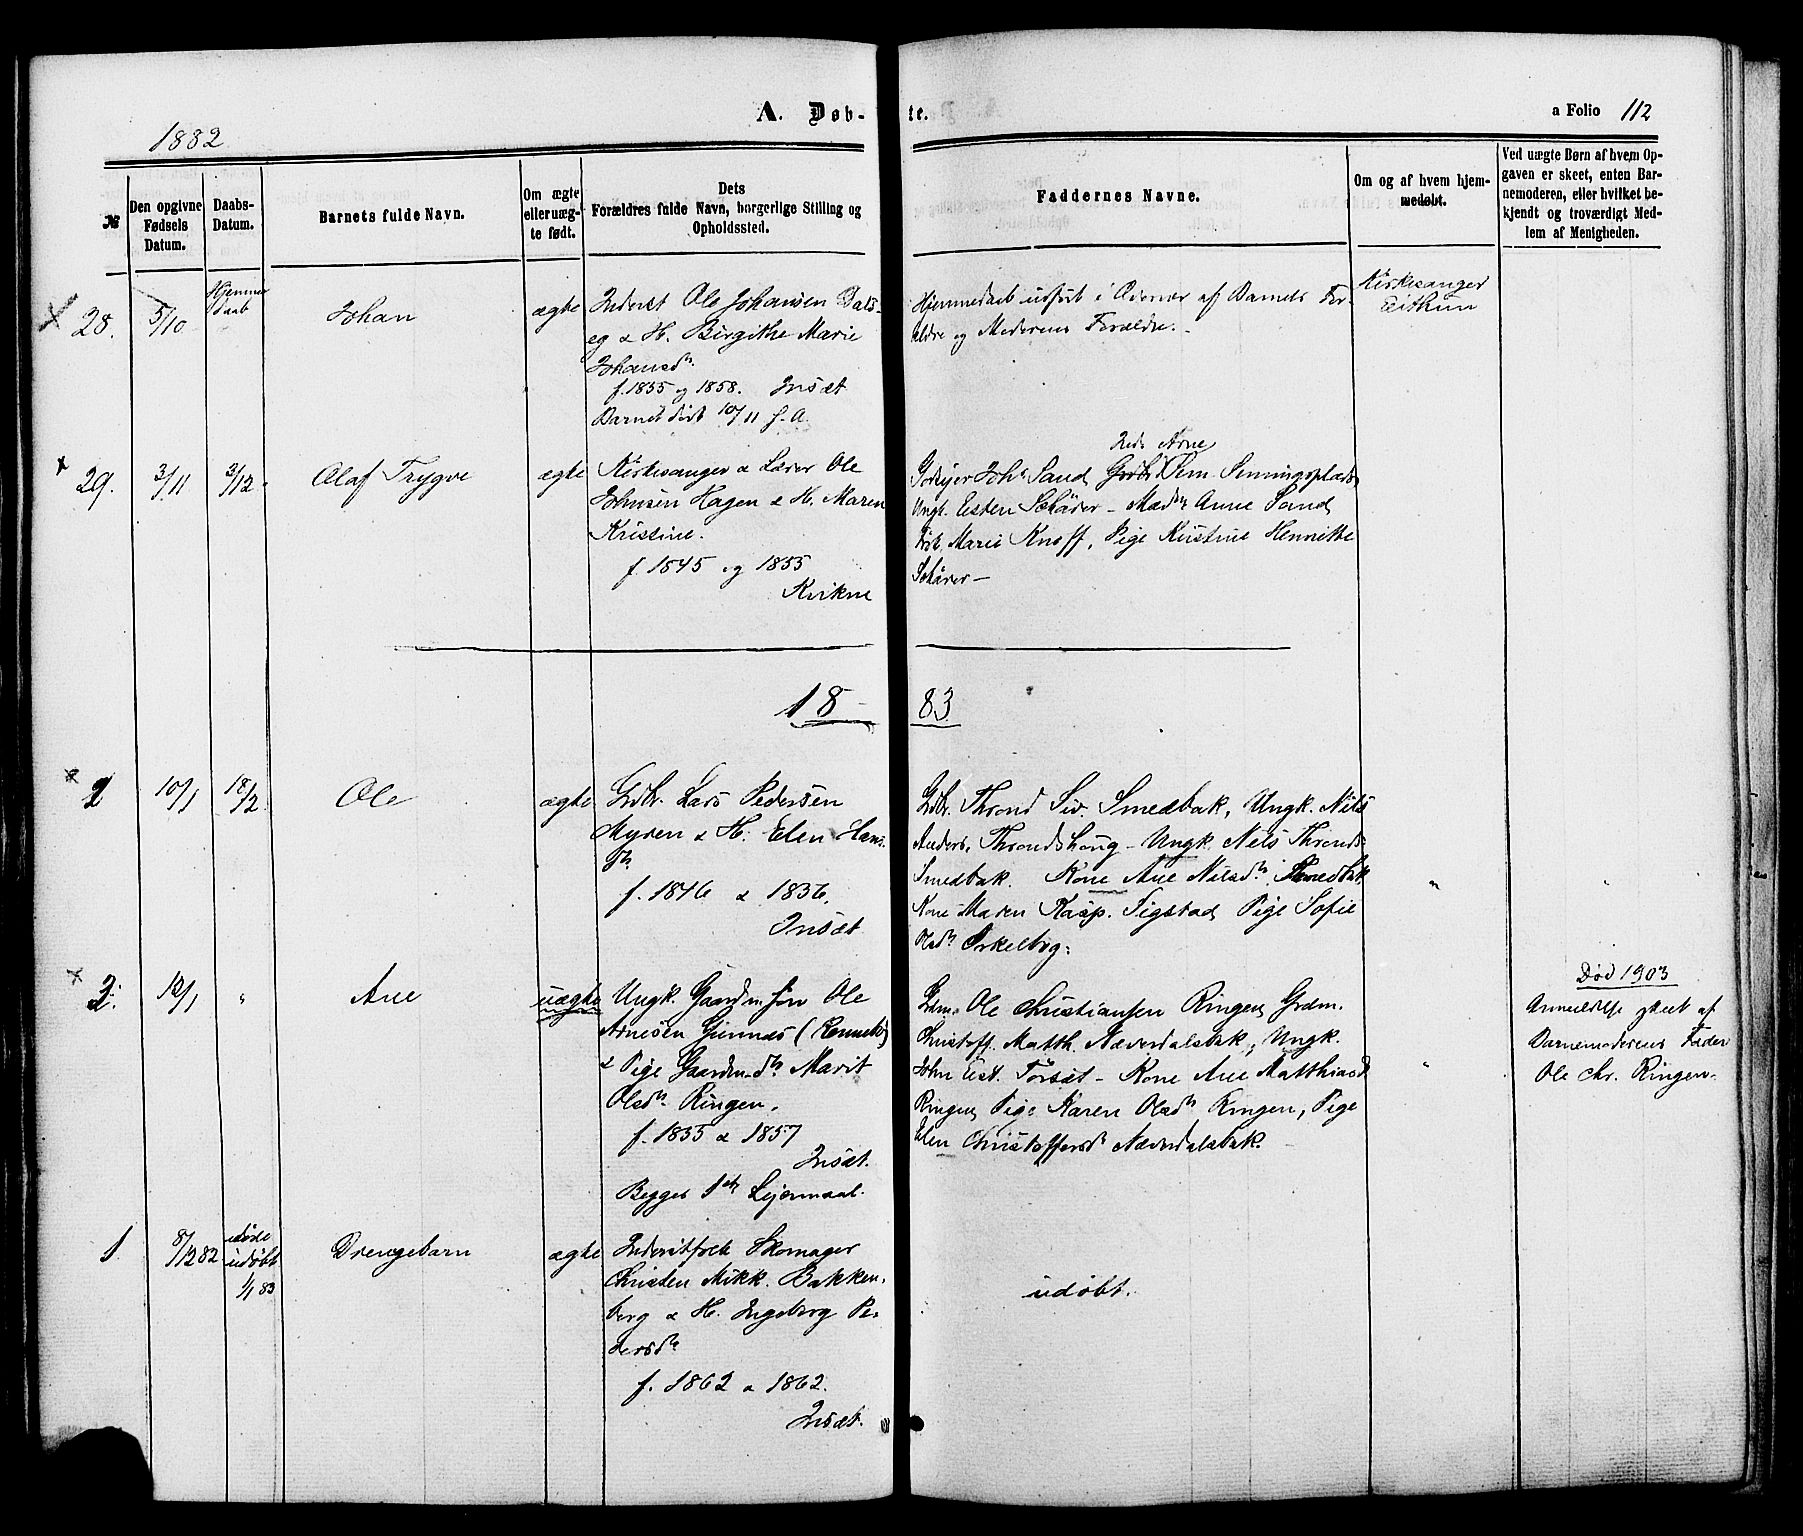 1882
A. Døb-
te.
a Folio 112
№
Den opgivne Fødsels Datum.
Daabs-Datum.
Barnets fulde Navn.
Om ægte eller uæg-te født.
Dets Forældres fulde Navn, borgerlige Stilling og Opholdssted.
Faddernes Navne.
Om og af hvem hjem-medøbt.
Ved uægte Børn af hvem Op-
gaven er skeet, enten Bar-
nemoderen, eller hvilket be-
kjendt og troværdigt Med-
lem af Menigheden.
28. 5/10 Hjemme daab Johan ægte
Inderst Ole Johansen Dals-
eg & H. Birgithe Marie
Johansdtr
f. 1855 og 1858. Insæt
Barnet dødt 10/11 s. A.
Hjemmedaab udført i Overvær af Barnets For-
ældre og Moderens Forældre.
Kirkesanger
Eithun
29. 3/11 3/12 Olaf Trygve ægte
Kirkesanger & Lærer Ole
Johnsen Hagen & H. Maren
Kristine.
f. 1845 og 1855
Kvikne
Arne
Joh. Sand
Ungk. Esten Schärer - Anne Sand
Marie Knoff, Pige Kristine Henriette
Schärer -
18 83
2 10/1 18/2 Ole ægte
Gdbr. Lars Pedersen
Myren & H. Elen Hans
dtr
f. 1846 & 1836.
Insæt
Gdbr. Thrond Siv. Smedbak, Ungk. Nils
Anders. Throndshaug - Ungk. Nils Thronds.
Smedbak. Kone Ane Nilsdtr Smedbak
Kone Maren Kasp. Sigstad Pige Sofie
Olsdtr
3. 12/1 " Ane uægte
Ungk. Gaardm. søn Ole
Arnesen Gunnes
& Pige Gaardm. dtr Marit
Olsdtr Ringen.
f. 1855 & 1857
Insæt.
Begges 1ste Lejermaal.
Gdm. Ole Christiansen Ringen, Grdm.
Christoff. Matth. Næverdalsbak, Ungk.
John Est. Torsæt - Kone Ane Matthiasd
Ringen, Pige Karen Olsdtr Ringen, Pige
Elen Christoffersdtr Næverdalsbak.
Død 1903
Anmeldelse skeet af
Barnemoderens Fader
Ole Chr. Ringen.
1. 8/12 82 døde udøbt 1/1 83 Drengebarn ægte
Inderstfolk Skomager
Christen Mikk. Bakken-
berg & H. Ingeborg Pe-
dersdtr
f. 1862 & 1862.
Insæt.
udøbt.